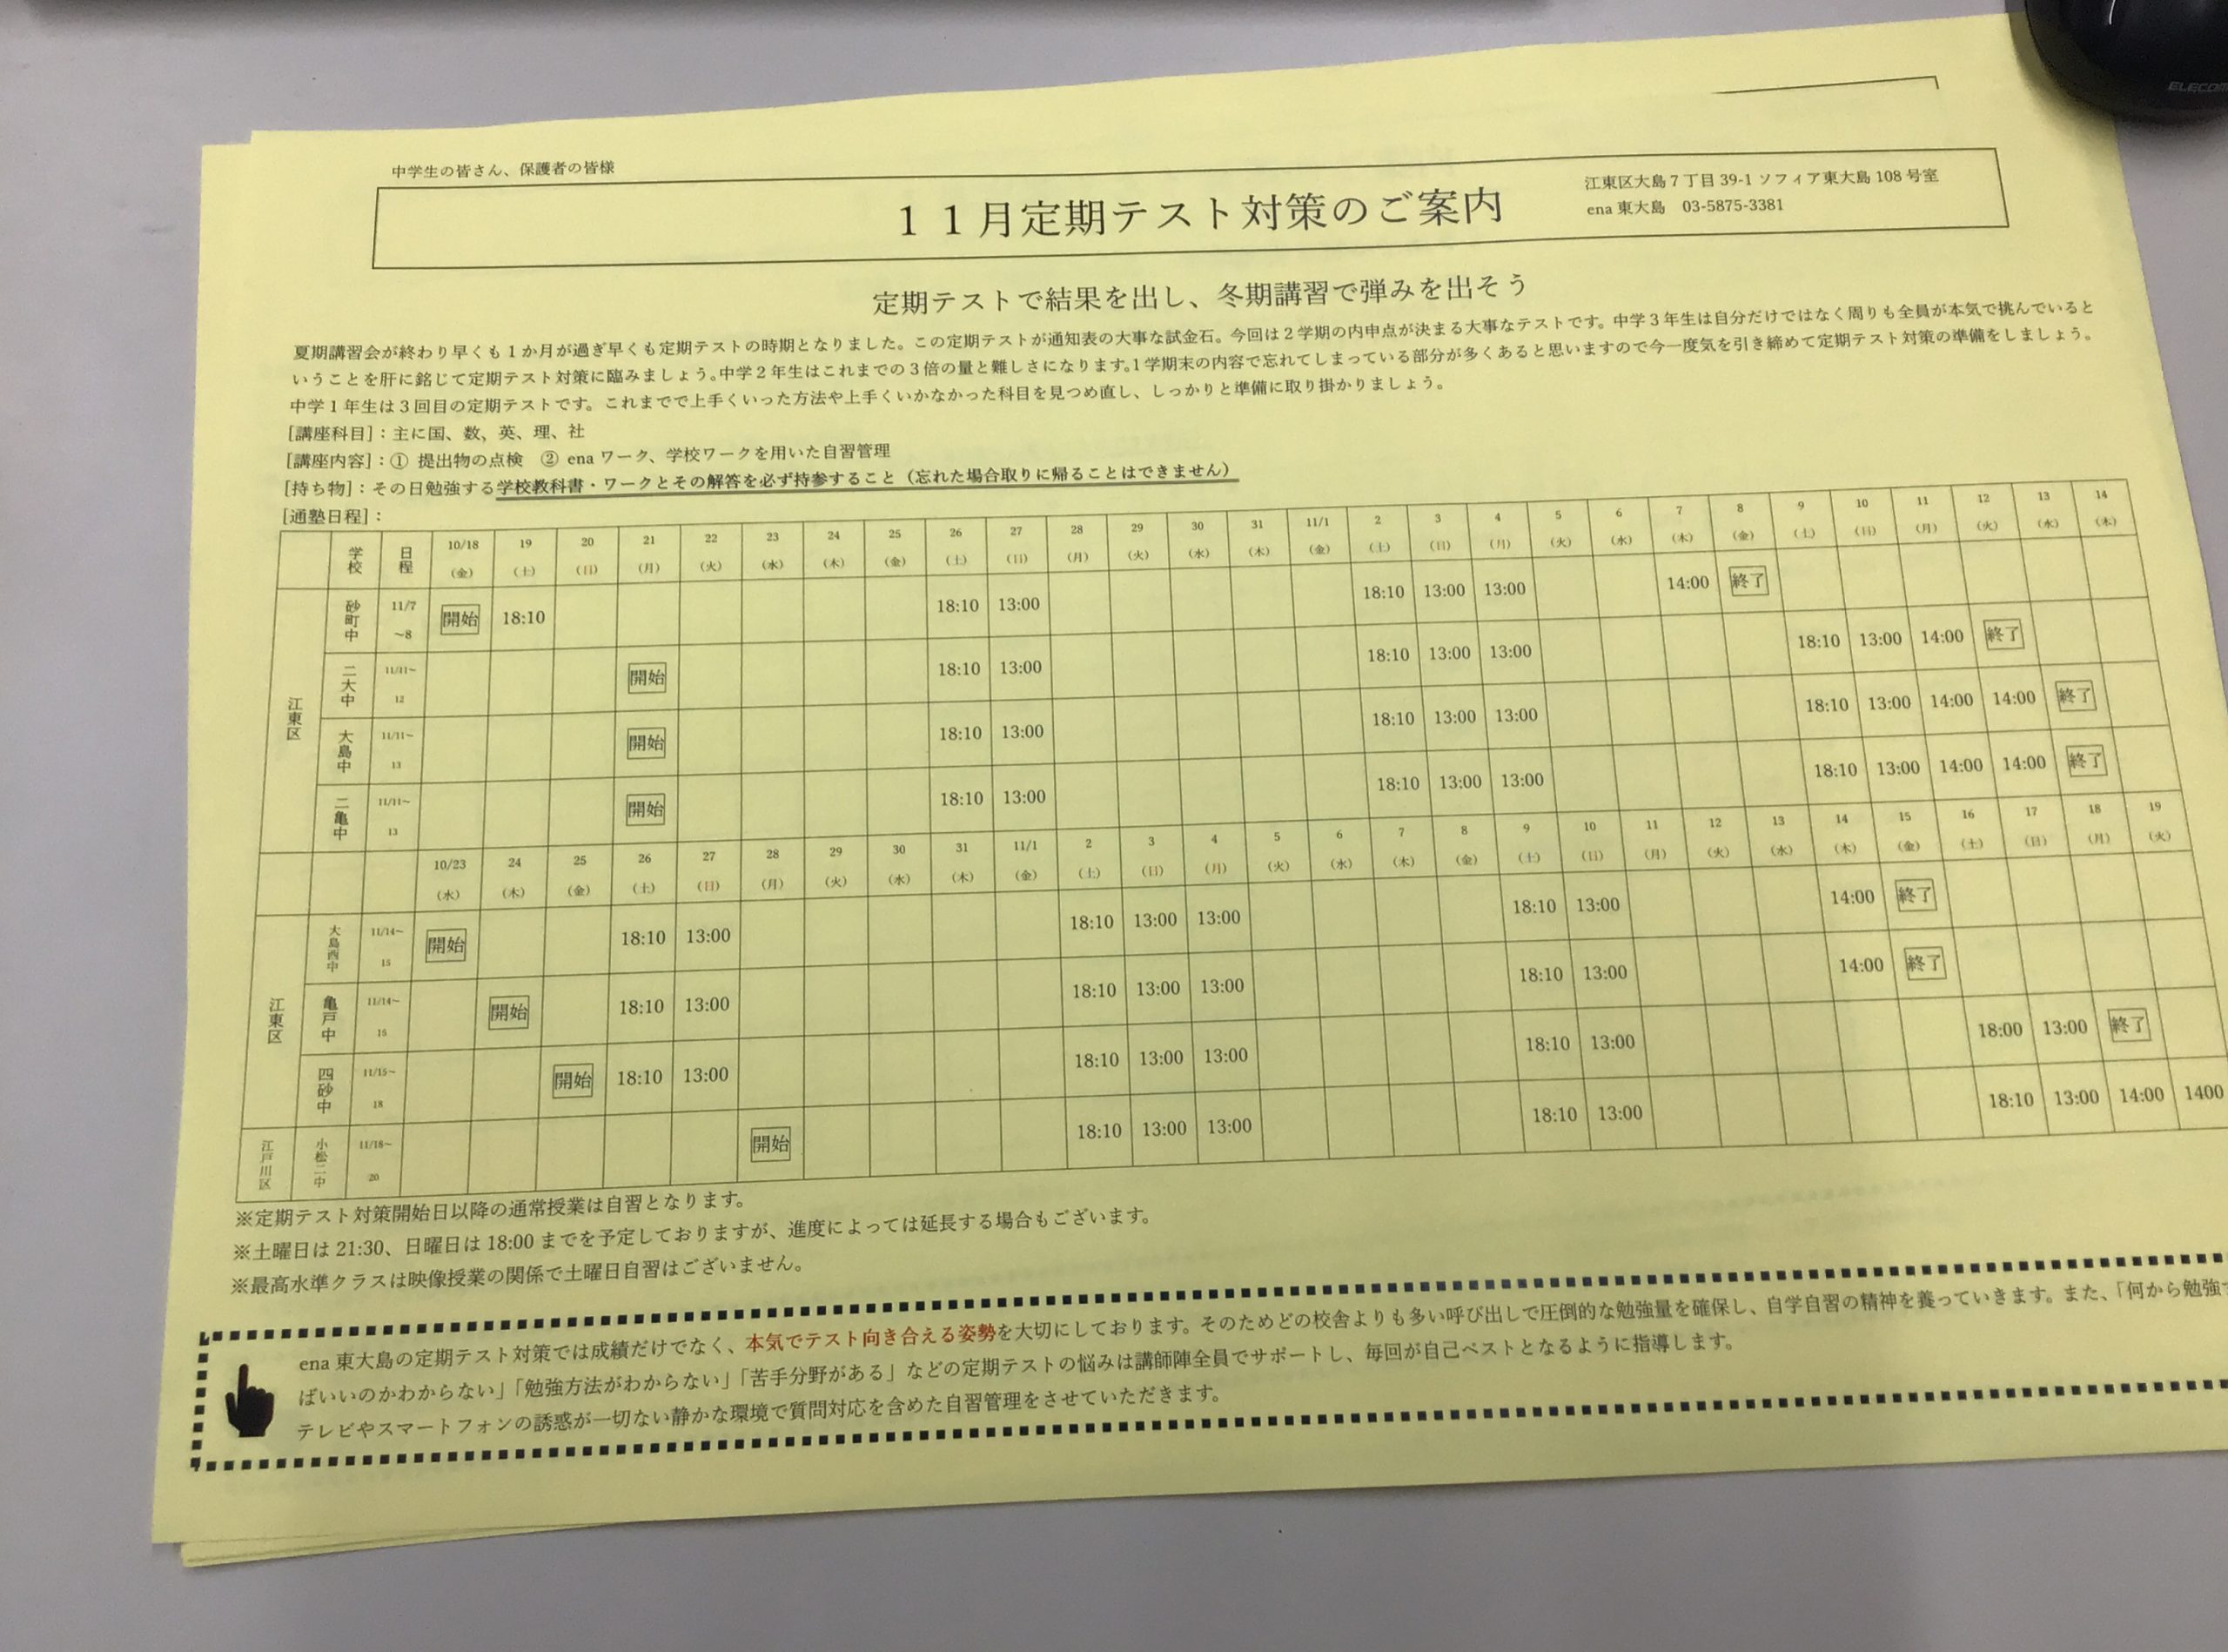 ELECOM
中学生の皆さん、保護者の皆様
１１月定期テスト対策のご案内
江東区大島7丁目39-1 ソフィア東大島108号室
ena 東大島　03-5875-3381
定期テストで結果を出し、冬期講習で弾みを出そう
夏期講習会が終わり早くも1か月が過ぎ早くも定期テストの時期となりました。この定期テストが通知表の大事な試金石。今回は2学期の内申点が決まる大事なテストです。中学3年生は自分だけではなく周りも全員が本気で挑んでいると
いうことを肝に銘じて定期テスト対策に臨みましょう。中学2年生はこれまでの3倍の量と難しさになります。1学期末の内容で忘れてしまっている部分が多くあると思いますので今一度気を引き締めて定期テスト対策の準備をしましょう。
中学1年生は3回目の定期テストです。これまでで上手くいった方法や上手くいかなかった科目を見つめ直し、しっかりと準備に取り掛かりましょう。
[講座科目]：主に国、数、英、理、社
[講座内容]：① 提出物の点検　② ena ワーク、学校ワークを用いた自習管理
[持ち物]：その日勉強する学校教科書・ワークとその解答を必ず持参すること（忘れた場合取りに帰ることはできません）
[通塾日程]：
学校 日程 10/18 19 20 21 22 23 24 25 26 27 28 29 30 31 11/1 2 3 4 5 6 7 8 9 10 11 12 13 14
（金） （土） （日） （月） （火） （水） （木） （金） （土） （日） （月） （火） （水） （木） （金） （土） （日） （月） （火） （水） （木） （金） （土） （日） （月） （火） （水） （木）
江東区
砂町中 11/7～8 開始 18:10 18:10 13:00 18:10 13:00 13:00 14:00 終了
二大中 11/11～12 開始 18:10 13:00 18:10 13:00 13:00 18:10 13:00 14:00 終了
大島中 11/11～13 開始 18:10 13:00 18:10 13:00 13:00 18:10 13:00 14:00 14:00 終了
二亀中 11/11～13 開始 18:10 13:00 18:10 13:00 13:00 18:10 13:00 14:00 14:00 終了
10/23 24 25 26 27 28 29 30 31 11/1 2 3 4 5 6 7 8 9 10 11 12 13 14 15 16 17 18 19
（水） （木） （金） （土） （日） （月） （火） （水） （木） （金） （土） （日） （月） （火） （水） （木） （金） （土） （日） （月） （火） （水） （木） （金） （土） （日） （月） （火）
江東区
大島西中 11/14～15 開始 18:10 13:00 18:10 13:00 13:00 18:10 13:00 14:00 終了
亀戸中 11/14～15 開始 18:10 13:00 18:10 13:00 13:00 18:10 13:00 14:00 終了
四砂中 11/15～18 開始 18:10 13:00 18:10 13:00 13:00 18:10 13:00 18:00 13:00 終了
江戸川区 小松二中 11/18～20 開始 18:10 13:00 13:00 18:10 13:00 18:10 13:00 14:00 1400
※定期テスト対策開始日以降の通常授業は自習となります。
※土曜日は21:30、日曜日は18:00までを予定しておりますが、進度によっては延長する場合もございます。
※最高水準クラスは映像授業の関係で土曜日自習はございません。
ena 東大島の定期テスト対策では成績だけでなく、本気でテスト向き合える姿勢を大切にしております。そのためどの校舎よりも多い呼び出しで圧倒的な勉強量を確保し、自学自習の精神を養っていきます。また、「何から勉強す
ばいいのかわからない」「勉強方法がわからない」「苦手分野がある」などの定期テストの悩みは講師陣全員でサポートし、毎回が自己ベストとなるように指導します。
テレビやスマートフォンの誘惑が一切ない静かな環境で質問対応を含めた自習管理をさせていただきます。